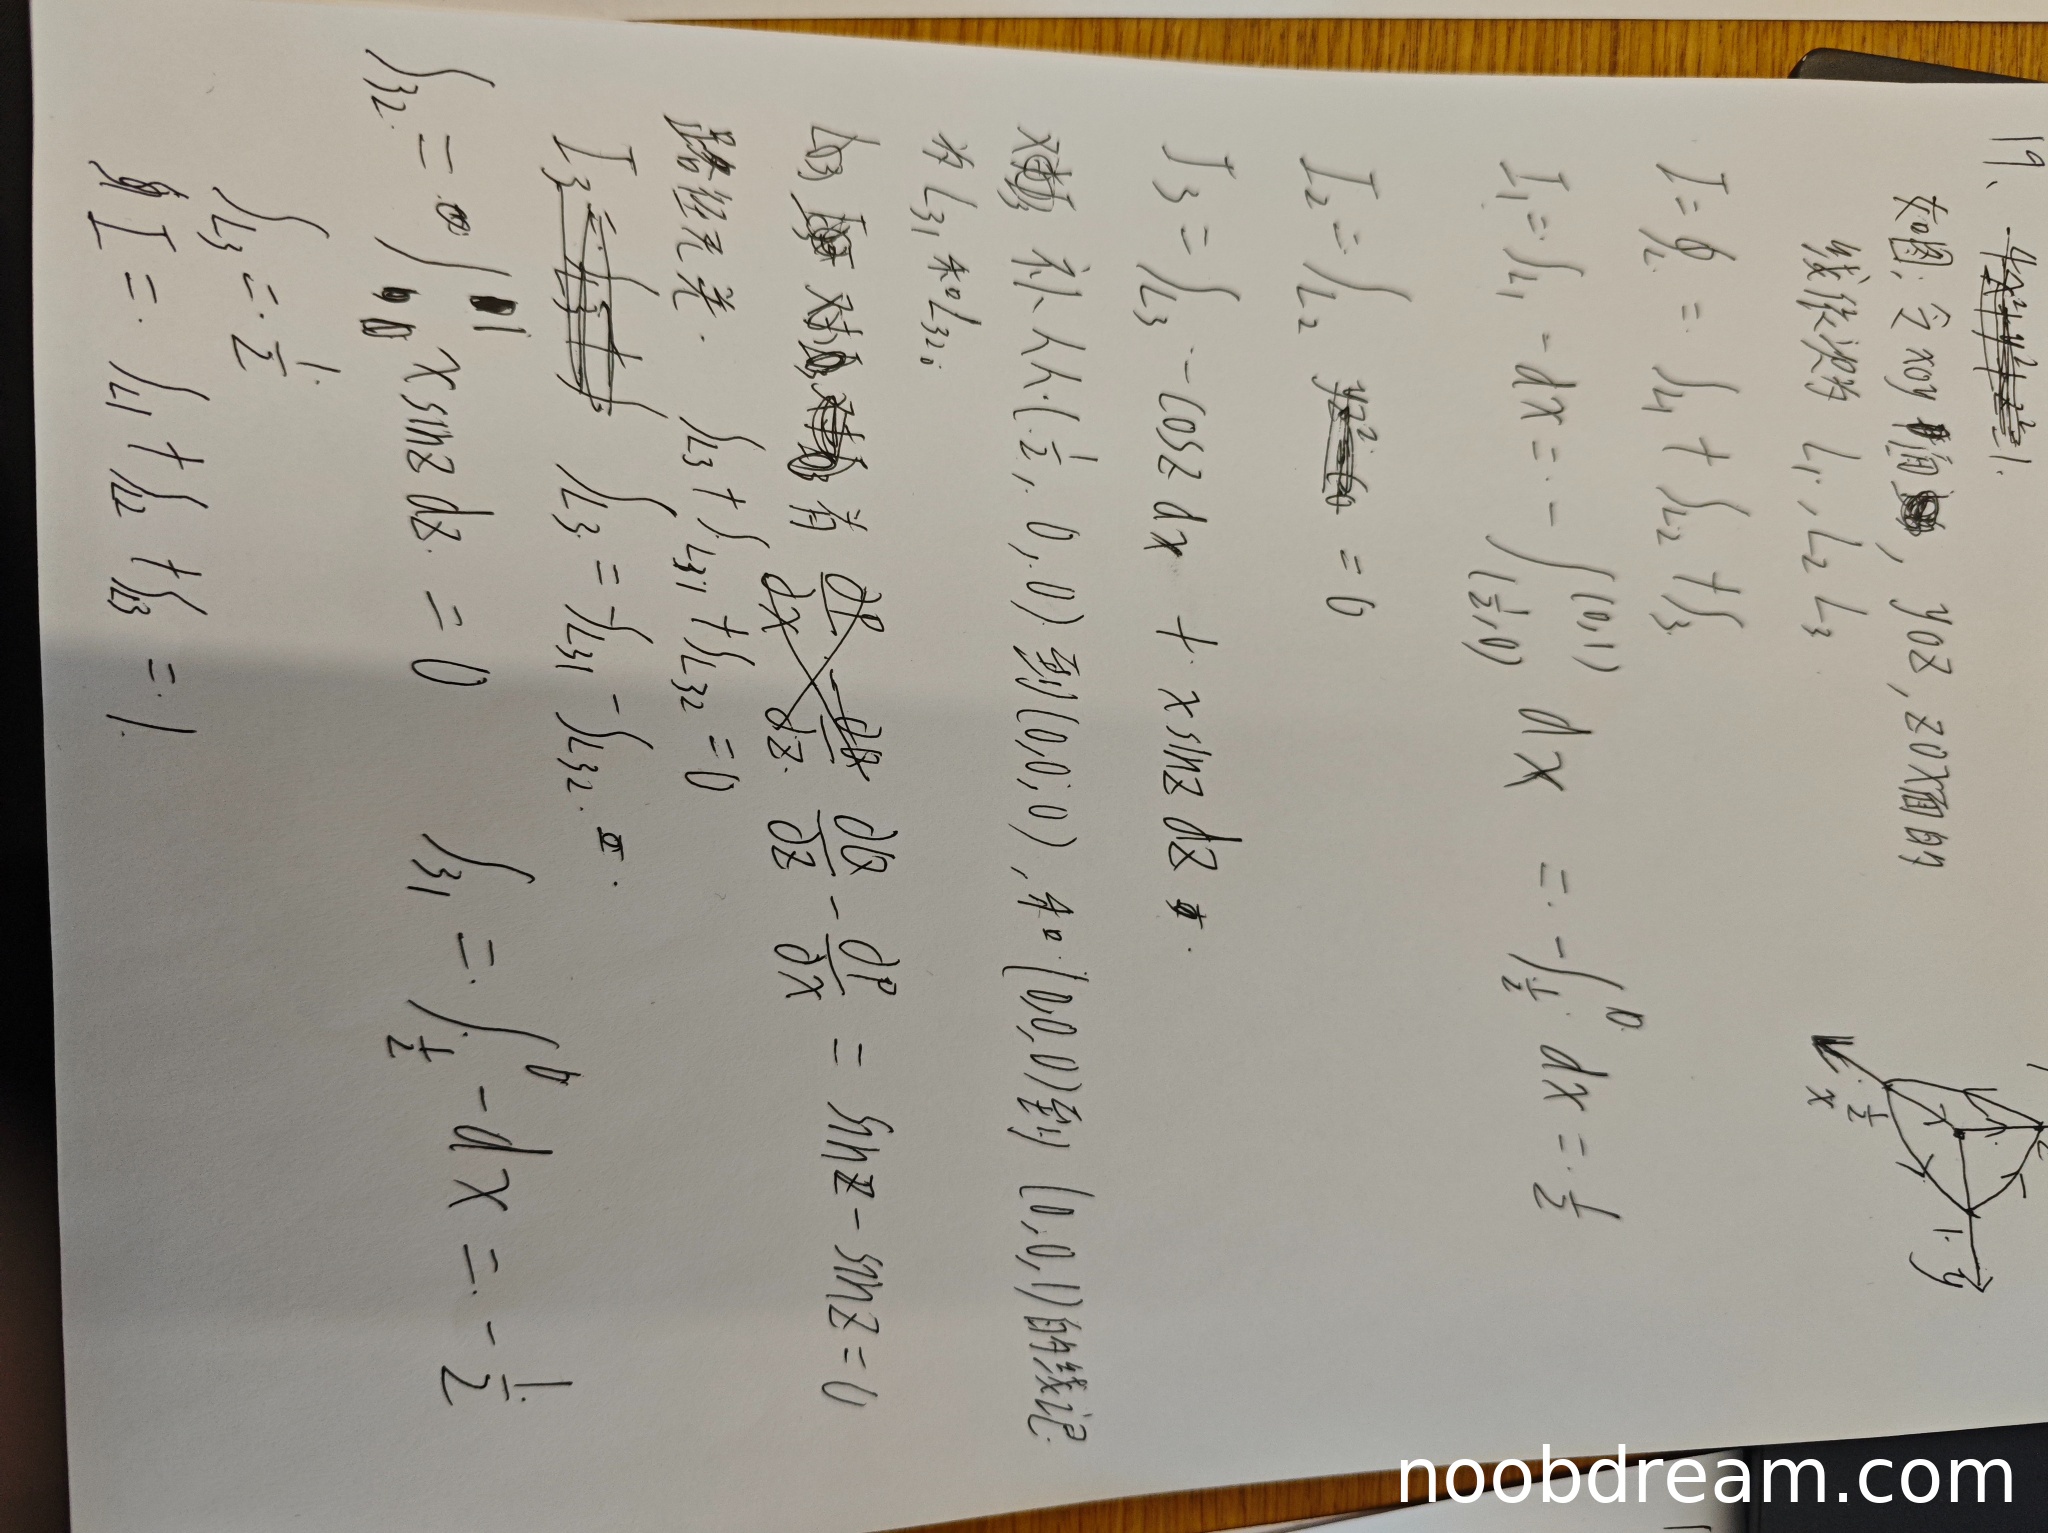 19、
如图: 令 xoy 面, yoz, zox面的
线段没为 L₁, L₂ L₃
I = ∮L = ∫L₁ + ∫L₂ + ∫L₃
I₁ = ∫L₁ -dx = -∫_(½,0)^(0,1) dx = -∫_½^0 dx = ½
I₂ = ∫L₂ = 0
I₃ = ∫L₃ -cosz dx + x sinz dz
补从(½, 0, 0) 到(0,0,0), 和(0,0,0)到 (0,0,1)的线记
为 L₃₁ 和L₃₂。
有 ∂Q/∂z - ∂P/∂x = sinz - sinz = 0
路径无关. ∫L₃ + ∫L₃₁ + ∫L₃₂ = 0
∫L₃ = -∫L₃₁ - ∫L₃₂.
∫₃₂ = ∫₀¹ x sinz dz = 0 ∫₃₁ = ∫_½^0 -dx = -½
∫L₃ = ½
I = ∫L₁ + ∫L₂ + ∫L₃ = 1
x
½
1
y
z
noobdream.com